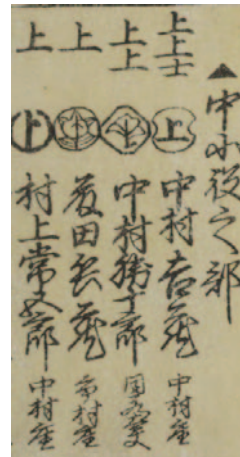 ▲中小役之部
上上士 上 中村吉蔵 中村座
上上 中村勝十郎 同
上 田 蔵 市村座
上 上 村上常五郎 中村座